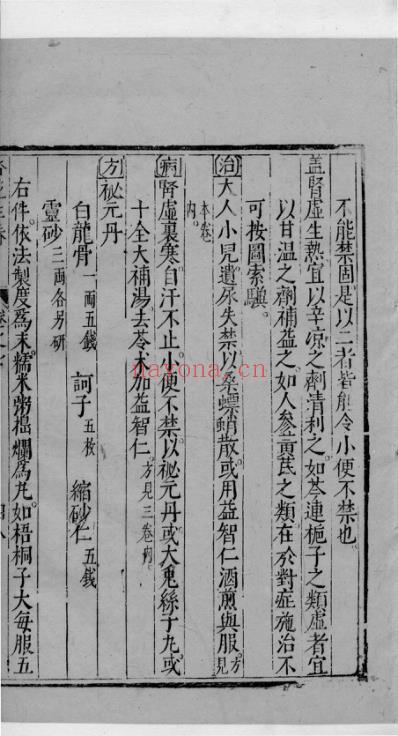 不能禁固是以二者皆能令小便不禁也
蓋腎虛生熱宜以辛凉之劑清利之如芩連梔子之類虛者宜
以甘温之劑補益之如人參黄芪之類在於對症施治不
可按圖索驥
治 大人小兒遺尿失禁以桑螵蛸散或用益智仁酒煎與服方見
本卷内
病 腎虛裏寒自汗不止小便不禁以祕元丹或大兎絲子丸或
十全大補湯去苓术加益智仁方見三卷内
方 祕元丹
白龍骨一両五錢 訶子五枚 縮砂仁五錢
靈砂二両各另研
右件依法製度爲末糯米粥搗爛爲丸如梧桐子大每服五
nayona.cn